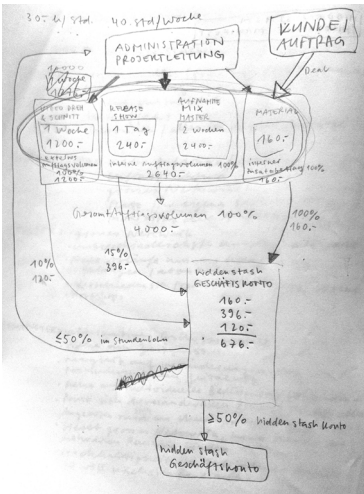 30.- h/Std. 40 std/Woche
KUNDE/
AUFTRAG
ADMINISTRATION
PROJEKTLEITUNG
Deal
1 Woche
VIDEO DREH
& SCHNITT
1 Woche
1200.-
100%
1200.-
RELEASE
SHOW
1 Tag
240.-
AUFNAHME
MIX
MASTER
2 Wochen
2400.-
interne Auftragsvolumen 100%
2640.-
MATERIAL
160.-
100%
160.-
Gesamtauftragsvolumen 100%
4000.-
100%
160.-
15%
396.-
10%
120.-
hidden stash
GESCHÄFTSKONTO
160.-
396.-
120.-
676.-
≤50% im Stundenlohn
≥50% hidden stash Konto
hidden stash
Geschäftskonto